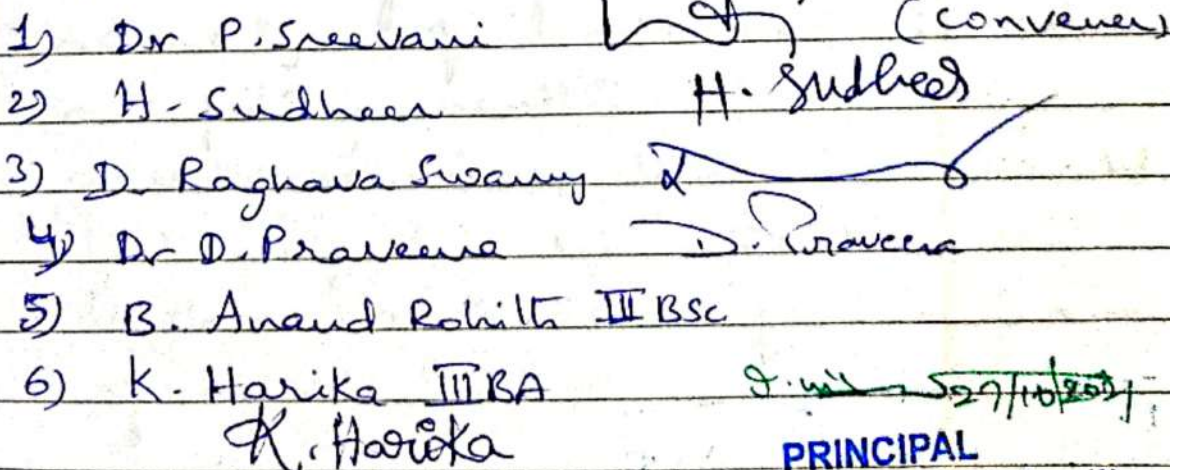 1) Dr P. Sreevani (convener)
2) H. Sudheer H. Sudheer
3) D. Raghava Swamy
4) Dr D. Praveena D. Praveena
5) B. Anand Rohith III BSc
6) K. Harika III BA 27/10/2021
K. Harika PRINCIPAL